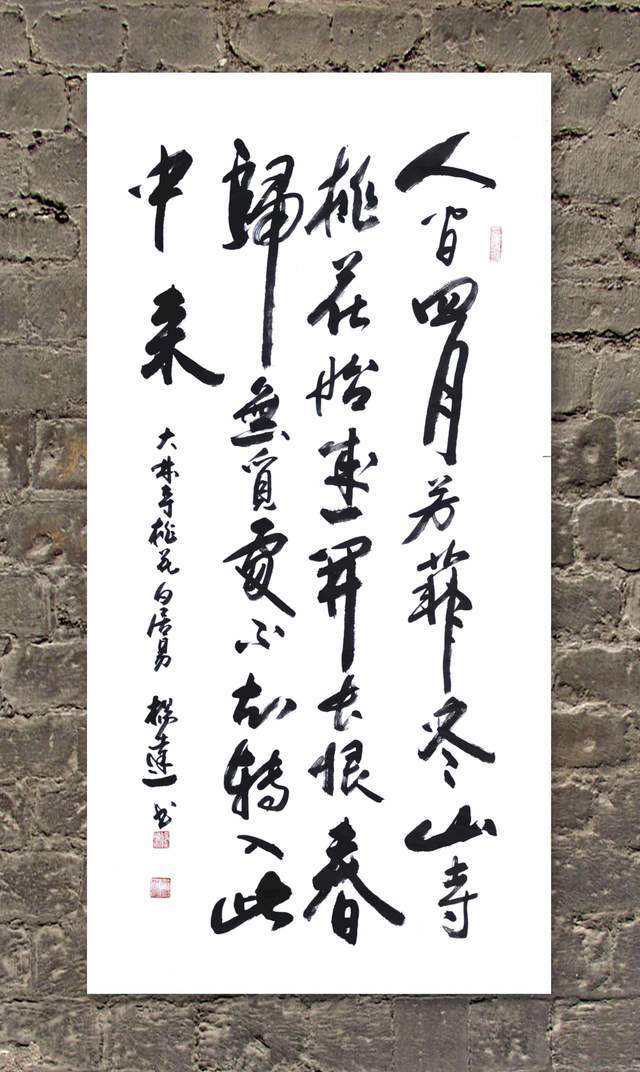 人间四月芳菲尽山寺
桃花始盛開长恨春
歸無覓處不知轉入此
中来
大林寺桃花白居易 達书